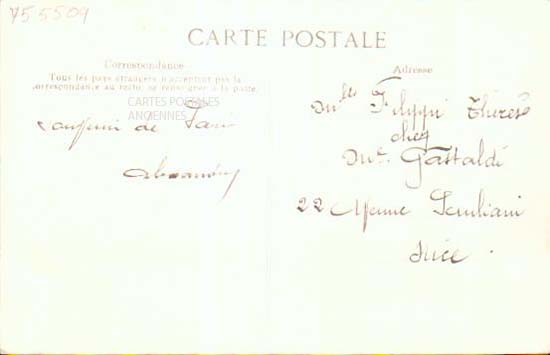 755509
CARTE POSTALE
Correspondance
Tous les pays étrangers n'acceptent pas la
correspondance au recto, se renseigner à la poste.
CARTES POSTALES
ANCIENNES
de Paris
Adresse
Mlle Filippi Thérèse
chez
Mr Gastaldi
22 Avenue
Nice